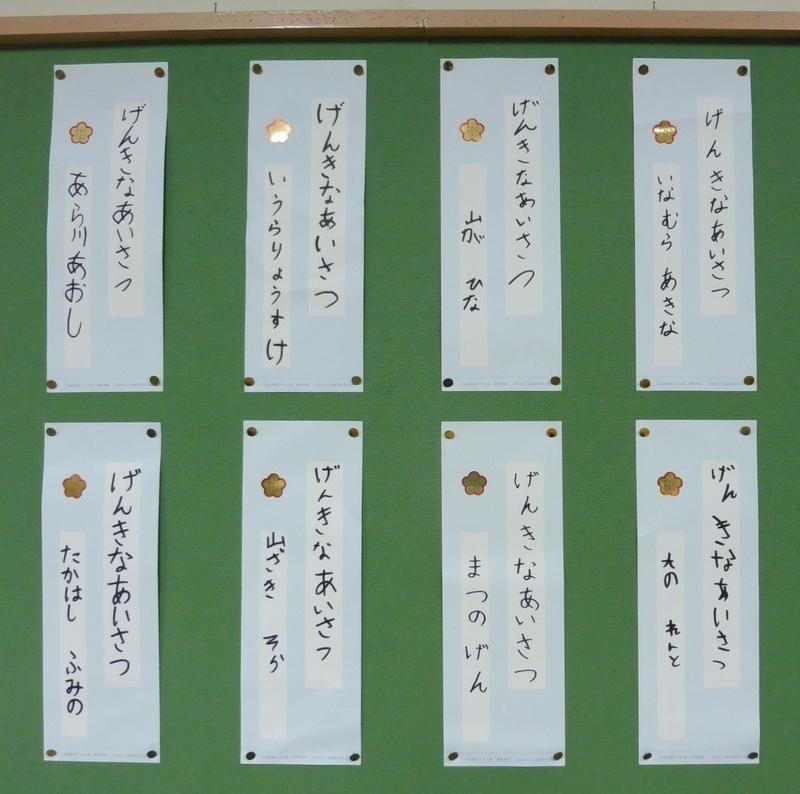 げんきなあいさつ
いなむら あきな
げんきなあいさつ
山が ひな
げんきなあいさつ
いうらりょうすけ
げんきなあいさつ
あら川あおし
げんきなあいさつ
その れんと
げんきなあいさつ
まつの げん
げんきなあいさつ
山ざき そら
げんきなあいさつ
たかはし ふみの